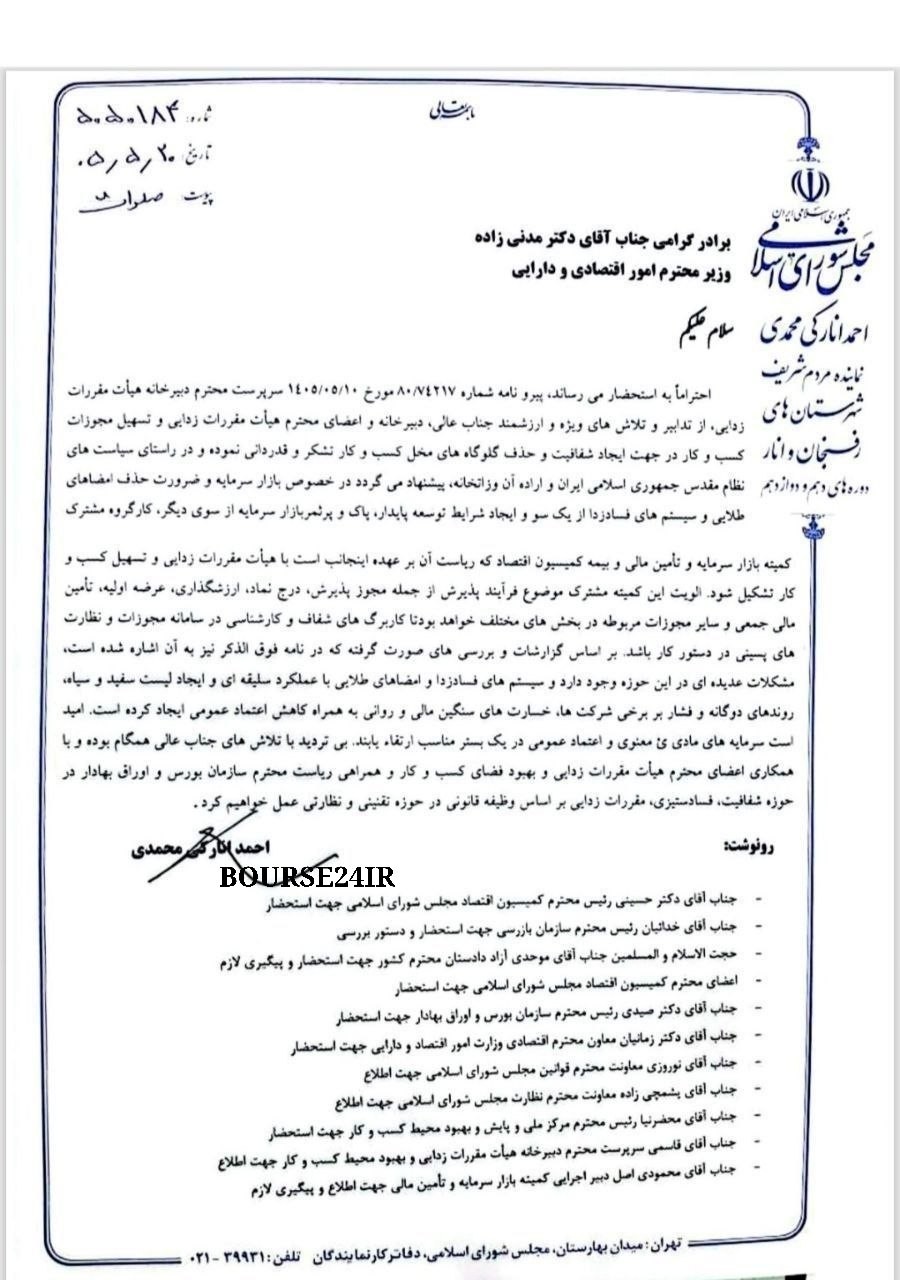 باسمه تعالی
شماره: ۵۰۵۰۱۸۴
تاریخ: ۰۵/۵/۲۰
پیوست:
جمهوری اسلامی ایران
مجلس شورای اسلامی
احمد انارکی محمدی
نماینده مردم شریف
شهرستان های
رفسنجان و انار
دوره های دهم و دوازدهم
برادر گرامی جناب آقای دکتر مدنی زاده
وزیر محترم امور اقتصادی و دارایی
سلام علیکم
احتراماً به استحضار می رساند، پیرو نامه شماره ۸۰/۷۴۲۱۷ مورخ ۱۴۰۵/۰۵/۱۰ سرپرست محترم دبیرخانه هیأت مقررات
زدایی، از تدابیر و تلاش های ویژه و ارزشمند جناب عالی، دبیرخانه و اعضای محترم هیأت مقررات زدایی و تسهیل مجوزات
کسب و کار در جهت ایجاد شفافیت و حذف گلوگاه های مخل کسب و کار تشکر و قدردانی نموده و در راستای سیاست های
نظام مقدس جمهوری اسلامی ایران و اراده آن وزاتخانه، پیشنهاد می گردد در خصوص بازار سرمایه و ضرورت حذف امضاهای
طلایی و سیستم های فسادزدا از یک سو و ایجاد شرایط توسعه پایدار، پاک و پرثمربازار سرمایه از سوی دیگر، کارگروه مشترک
کمیته بازار سرمایه و تأمین مالی و بیمه کمیسیون اقتصاد که ریاست آن بر عهده اینجانب است با هیأت مقررات زدایی و تسهیل کسب و
کار تشکیل شود. الویت این کمیته مشترک موضوع فرآیند پذیرش از جمله مجوز پذیرش، درج نماد، ارزشگذاری، عرضه اولیه، تأمین
مالی جمعی و سایر مجوزات مربوطه در بخش های مختلف خواهد بودتا کاربرگ های شفاف و کارشناسی در سامانه مجوزات و نظارت
های پسینی در دستور کار باشد. بر اساس گزارشات و بررسی های صورت گرفته که در نامه فوق الذکر نیز به آن اشاره شده است،
مشکلات عدیده ای در این حوزه وجود دارد و سیستم های فسادزدا و امضاهای طلایی با عملکرد سلیقه ای و ایجاد لیست سفید و سیاه،
روندهای دوگانه و فشار بر برخی شرکت ها، خسارت های سنگین مالی و روانی به همراه کاهش اعتماد عمومی ایجاد کرده است. امید
است سرمایه های مادی ئ معنوی و اعتماد عمومی در یک بستر مناسب ارتقاء یابند. بی تردید با تلاش های جناب عالی همگام بوده و با
همکاری اعضای محترم هیأت مقررات زدایی و بهبود فضای کسب و کار و همراهی ریاست محترم سازمان بورس و اوراق بهادار در
حوزه شفافیت، فسادستیزی، مقررات زدایی بر اساس وظیفه قانونی در حوزه تقنینی و نظارتی عمل خواهیم کرد.
احمد انارکی محمدی
BOURSE24IR
رونوشت:
- جناب آقای دکتر حسینی رئیس محترم کمیسیون اقتصاد مجلس شورای اسلامی جهت استحضار
- جناب آقای خدائیان رئیس محترم سازمان بازرسی جهت استحضار و دستور بررسی
- حجت الاسلام و المسلمین جناب آقای موحدی آزاد دادستان محترم کشور جهت استحضار و پیگیری لازم
- اعضای محترم کمیسیون اقتصاد مجلس شورای اسلامی جهت استحضار
- جناب آقای دکتر صیدی رئیس محترم سازمان بورس و اوراق بهادار جهت استحضار
- جناب آقای دکتر زمانیان معاون محترم اقتصادی وزارت امور اقتصاد و دارایی جهت استحضار
- جناب آقای نوروزی معاونت محترم قوانین مجلس شورای اسلامی جهت اطلاع
- جناب آقای پشمچی زاده معاونت محترم نظارت مجلس شورای اسلامی جهت اطلاع
- جناب آقای محضرنیا رئیس محترم مرکز ملی و پایش و بهبود محیط کسب و کار جهت استحضار
- جناب آقای قاسمی سرپرست محترم دبیرخانه هیأت مقررات زدایی و بهبود محیط کسب و کار جهت اطلاع
- جناب آقای محمودی اصل دبیر اجرایی کمیته بازار سرمایه و تأمین مالی جهت اطلاع و پیگیری لازم
تهران: میدان بهارستان، مجلس شورای اسلامی، دفاتر کار نمایندگان تلفن: ۳۹۹۳۱ - ۰۲۱